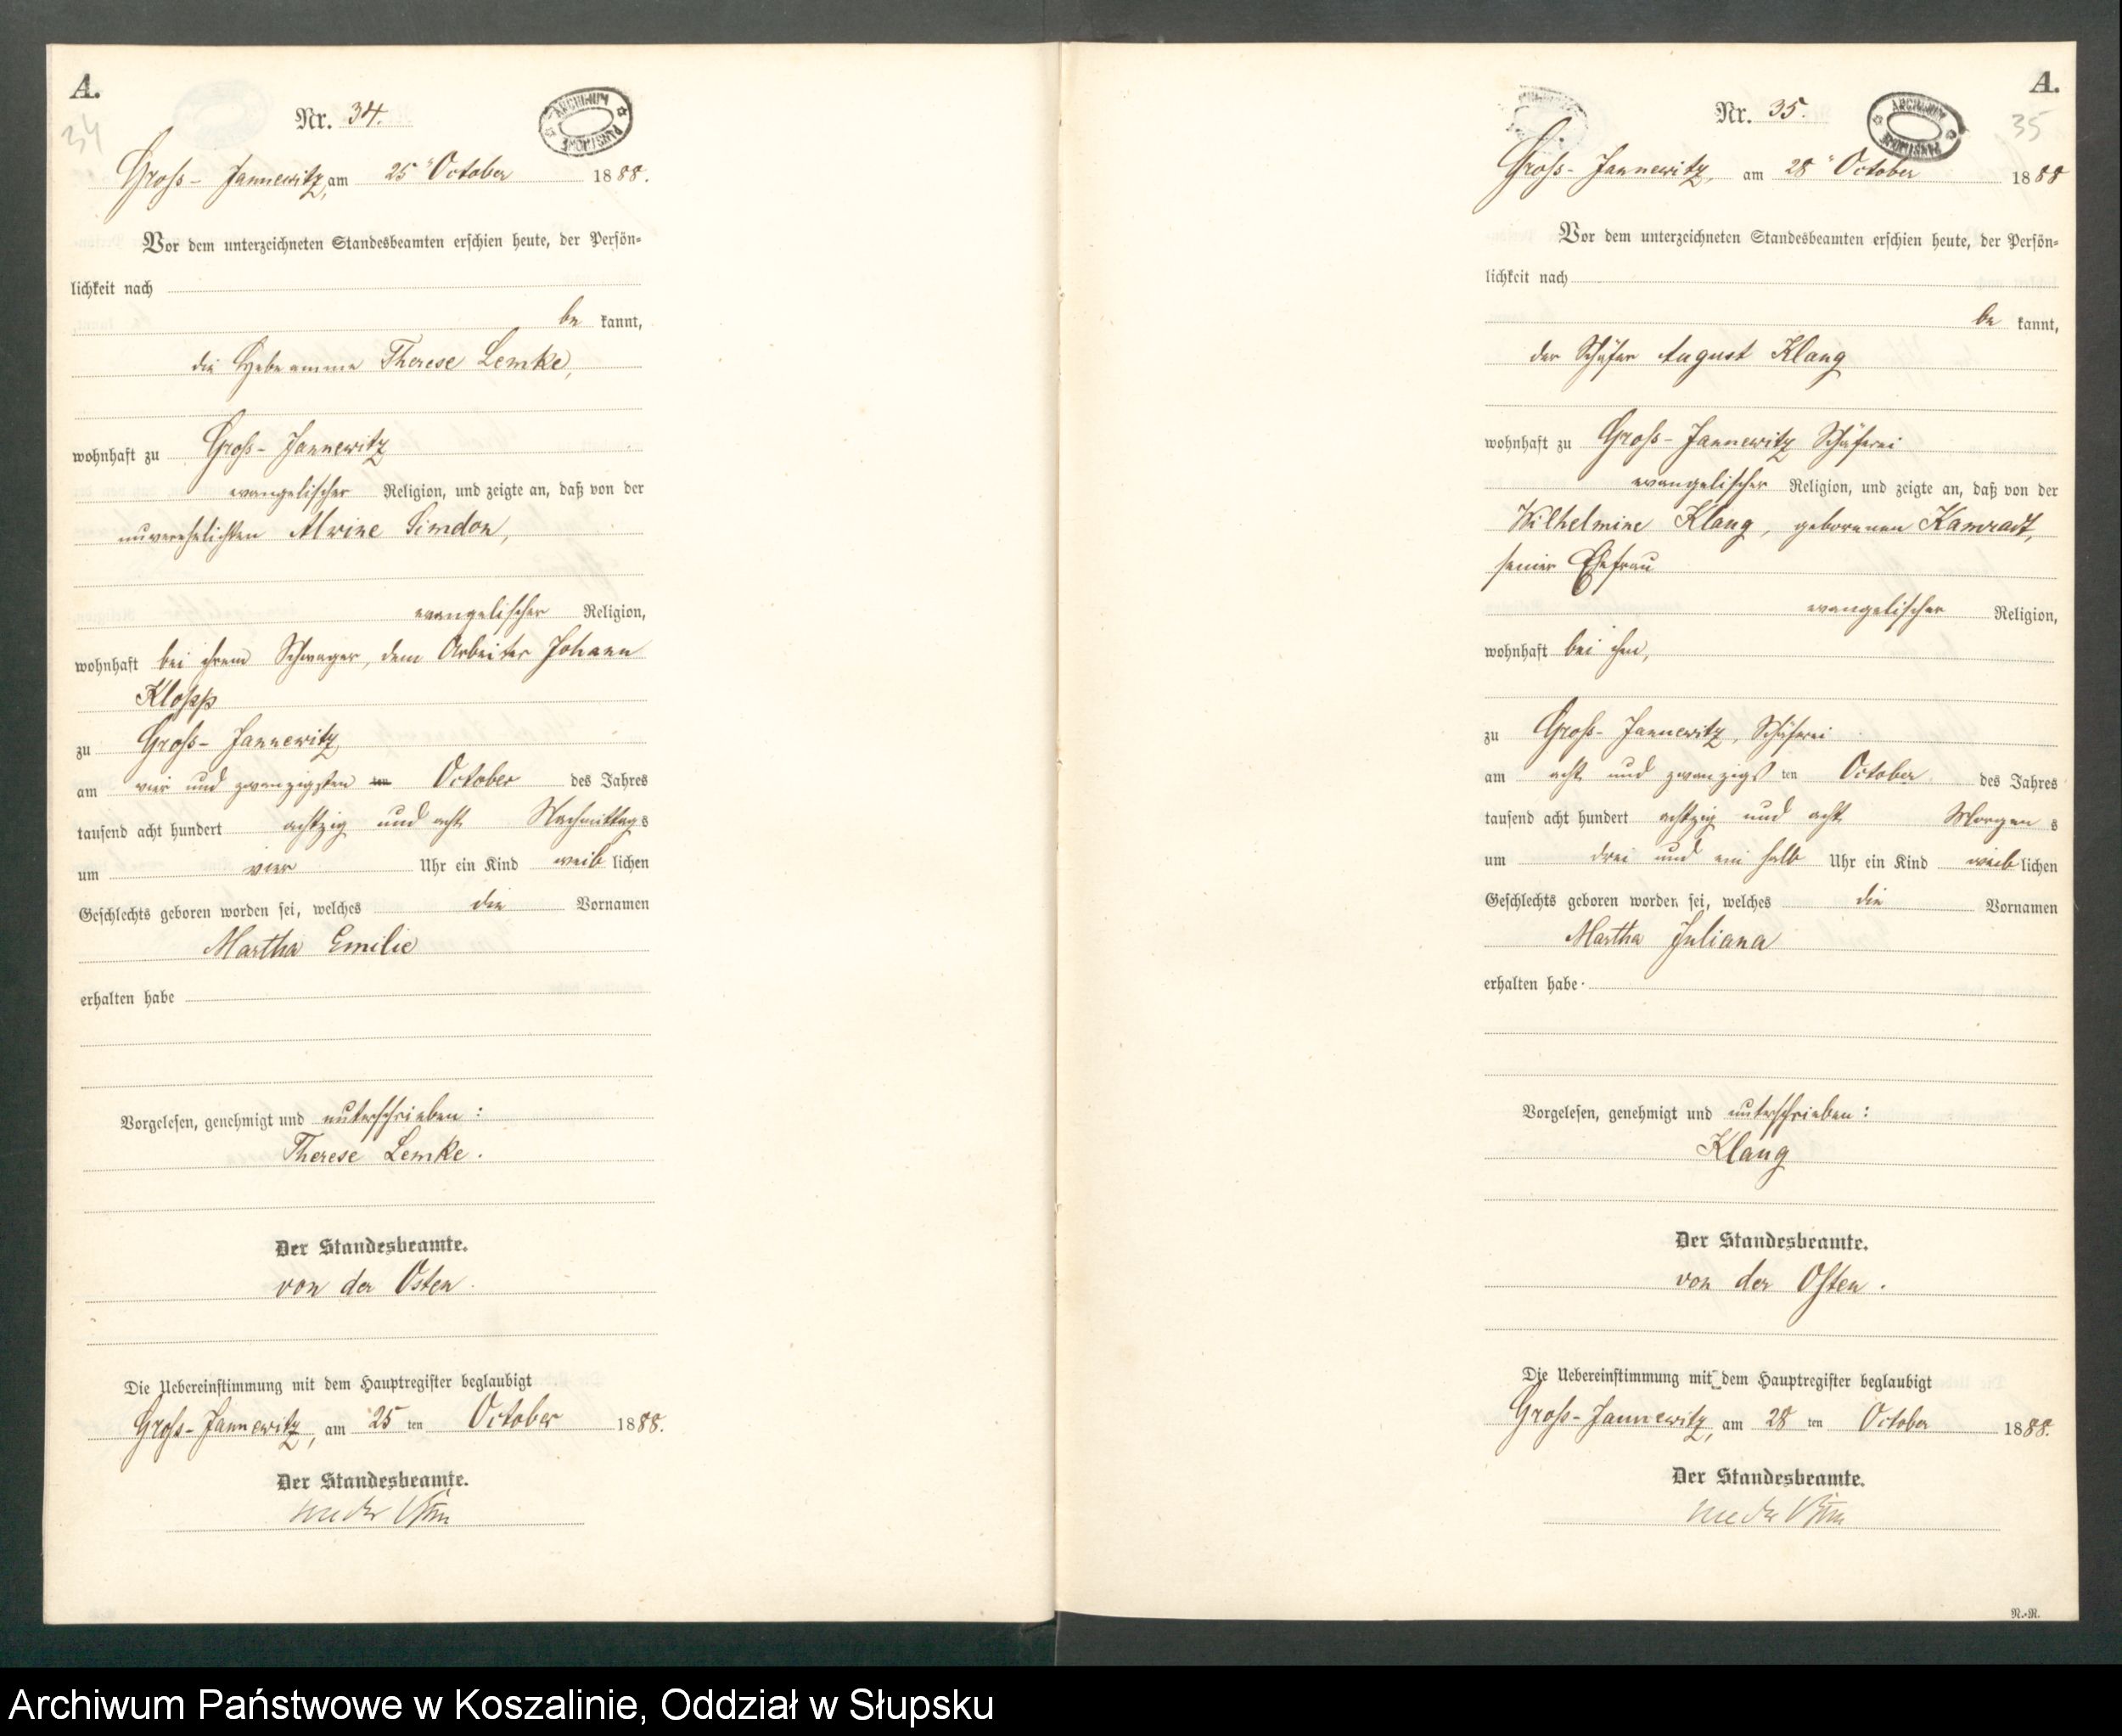 A.
34
Nr. 34.
ARCHIWUM PAŃSTWOWE
Gross-Jannewitz, am 25" October 1888.
Vor dem unterzeichneten Standesbeamten erschien heute, der Persön-
lichkeit nach
be kannt,
die Hebeamme Therese Lemke,
wohnhaft zu Gross-Jannewitz
evangelischer Religion, und zeigte an, daß von der
unverehelichten Alwine Simdon,
evangelischer Religion,
wohnhaft bei ihrem Schwager, dem Arbeiter Johann
Klopp
zu Gross-Jannewitz
am vier und zwanzigsten ten October des Jahres
tausend acht hundert achtzig und acht Nachmittags
um vier Uhr ein Kind weib lichen
Geschlechts geboren worden sei, welches die Vornamen
Martha Emilie
erhalten habe
Vorgelesen, genehmigt und unterschrieben:
Therese Lemke.
Der Standesbeamte.
von der Osten.
Die Uebereinstimmung mit dem Hauptregister beglaubigt
Gross-Jannewitz, am 25 ten October 1888.
Der Standesbeamte.
von der Osten
A.
35
Nr. 35.
ARCHIWUM PAŃSTWOWE
Gross-Jannewitz, am 28" October 1888
Vor dem unterzeichneten Standesbeamten erschien heute, der Persön-
lichkeit nach
be kannt,
der Schäfer August Klang
wohnhaft zu Gross-Jannewitz Schäferei
evangelischer Religion, und zeigte an, daß von der
Wilhelmine Klang, geborenen Kamradt,
seiner Ehefrau
evangelischer Religion,
wohnhaft bei ihm,
zu Gross-Jannewitz, Schäferei
am acht und zwanzigs ten October des Jahres
tausend acht hundert achtzig und acht Morgen s
um drei und ein halb Uhr ein Kind weib lichen
Geschlechts geboren worden sei, welches die Vornamen
Martha Juliana
erhalten habe
Vorgelesen, genehmigt und unterschrieben:
Klang
Der Standesbeamte.
von der Osten.
Die Uebereinstimmung mit dem Hauptregister beglaubigt
Gross-Jannewitz, am 28 ten October 1888.
Der Standesbeamte.
von der Osten
N.-N.
Archiwum Państwowe w Koszalinie, Oddział w Słupsku